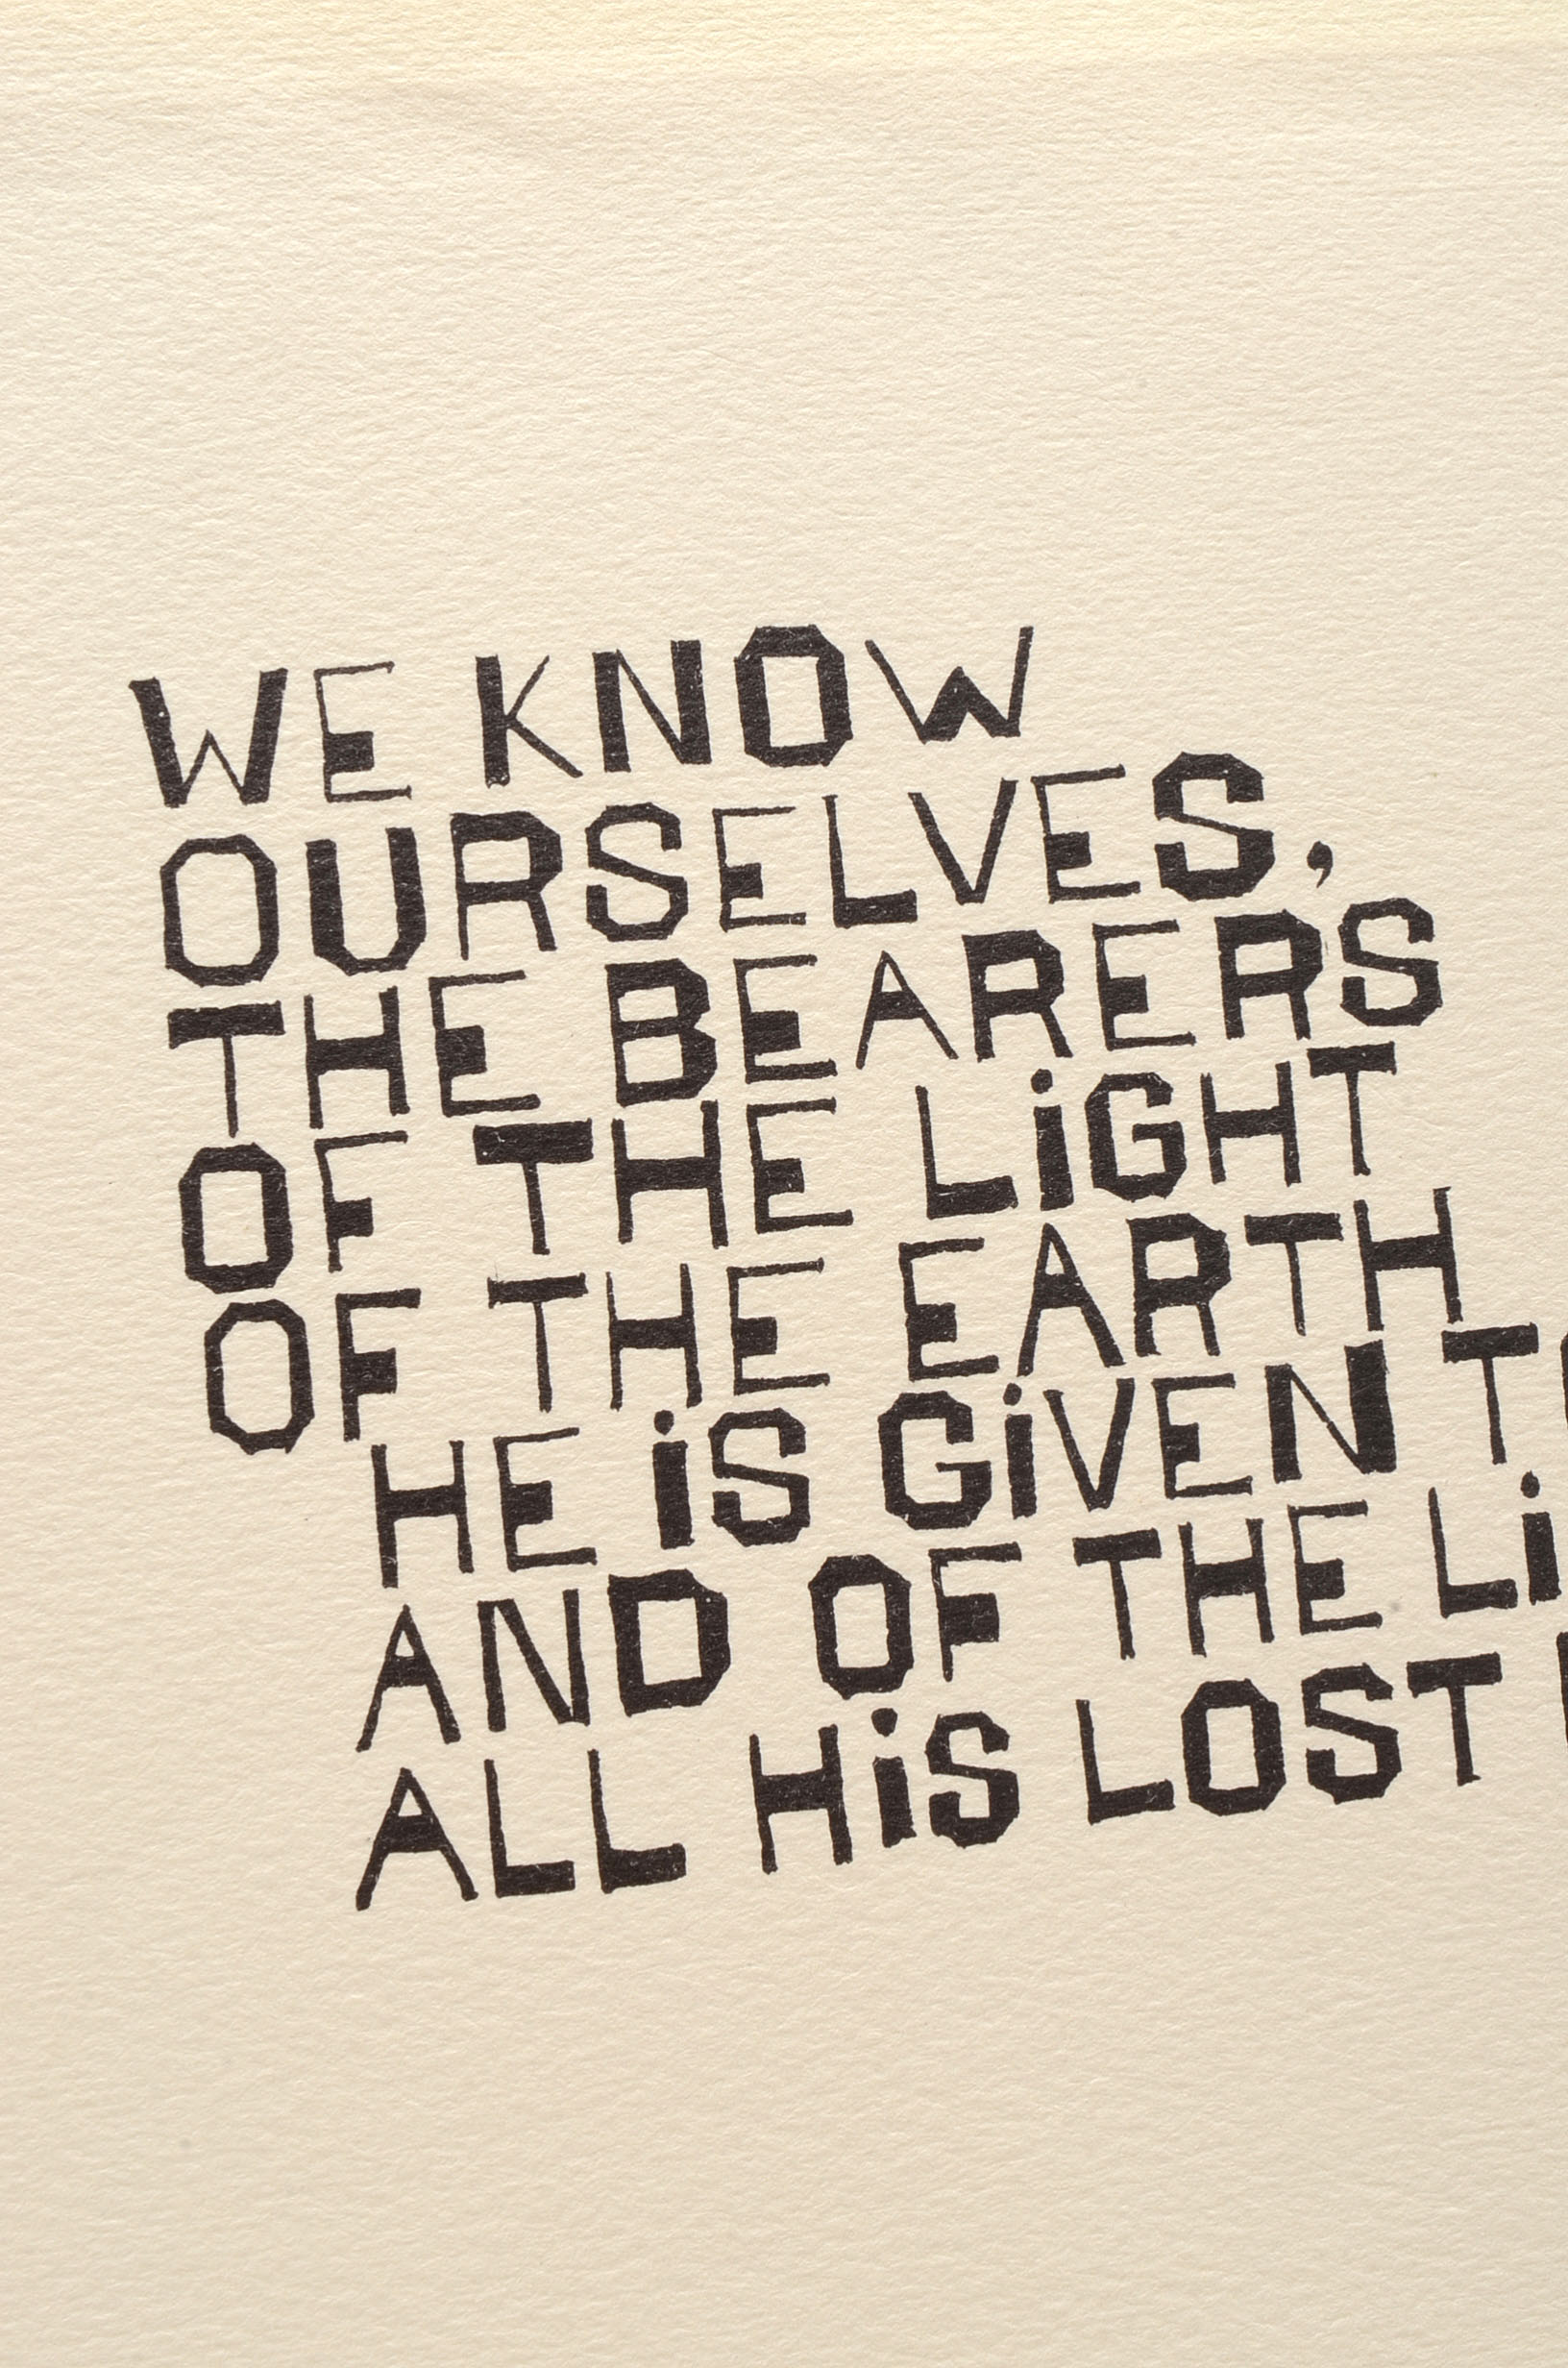 WE KNOW
OURSELVES,
THE BEARERS
OF THE LiGHT
OF THE EARTH
HE iS GiVEN
AND OF THE
ALL HiS LOST